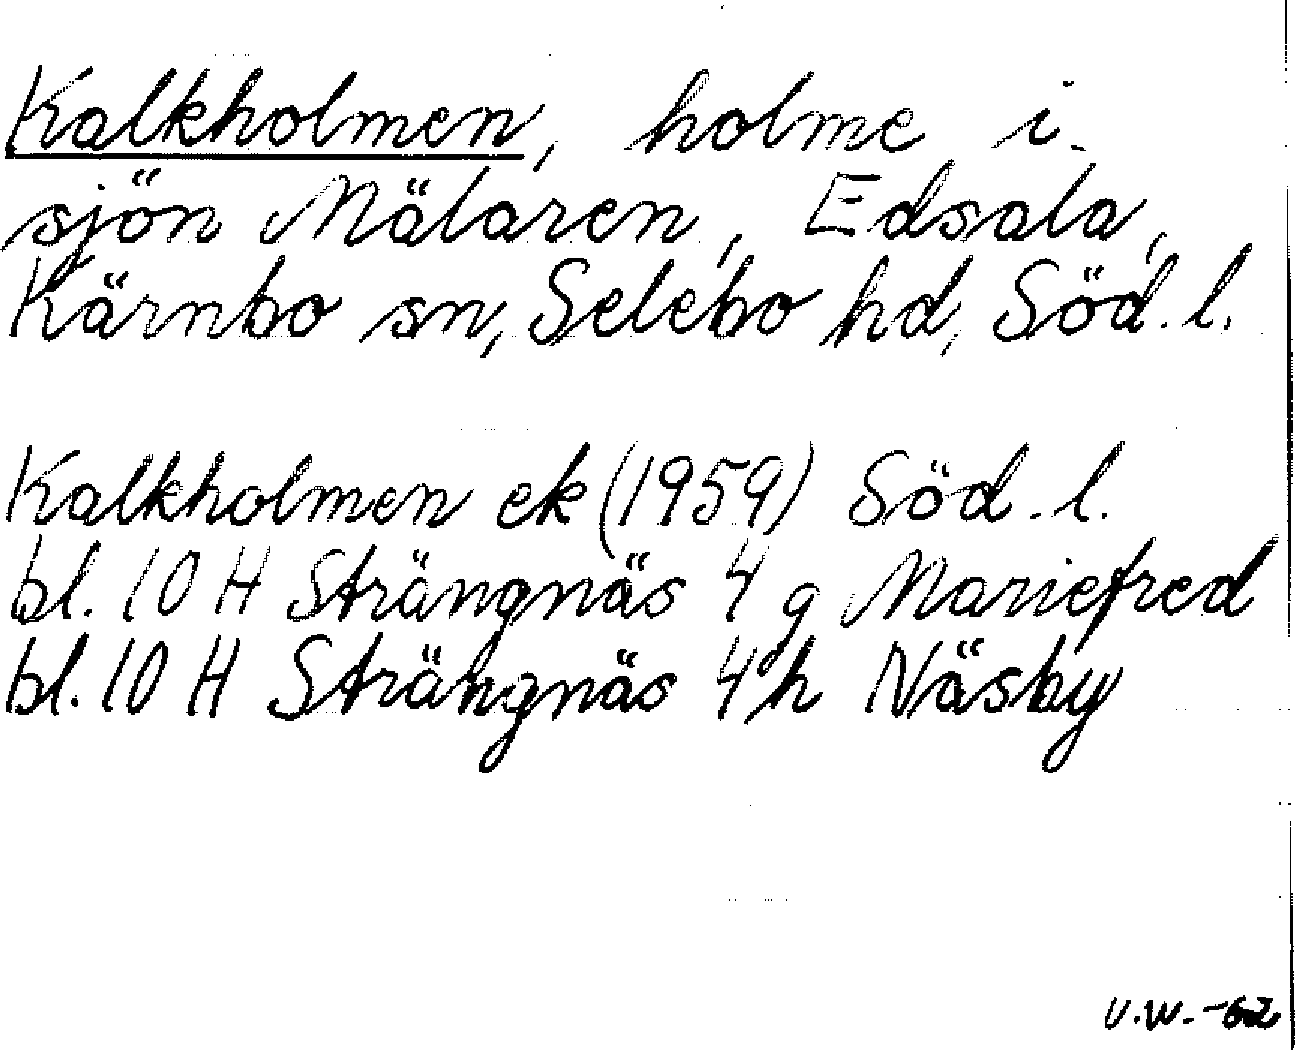 Kalkholmen, holme i
sjön Mälaren, Edsala,
Kärnbo sn, Selebo hd, Söd. l.
Kalkholmen ek (1959) Söd. l.
bl. 10 H Strängnäs 4 g Mariefred
bl. 10 H Strängnäs 4 h Näsby
U.W. -62